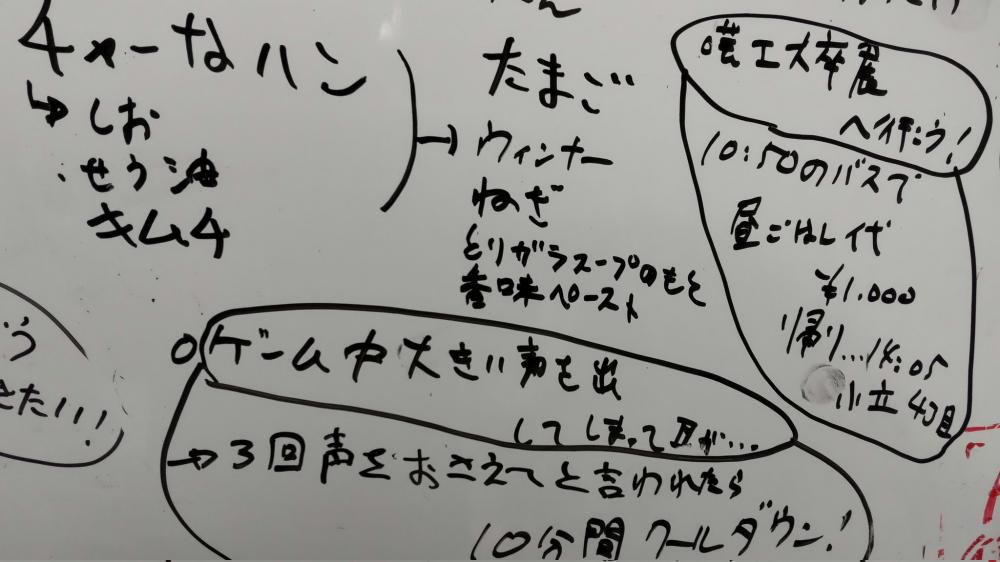 チャーなハン
↳ しお
・せう油
キムチ
→ たまご
ウィンナー
ねぎ
とりがらスープのもと
香味ペースト
工大卒展
へ行こう!
10:50のバスで
昼ごはん代
¥1.000
帰り…1 :05
小立 4丁目
う
きた!!!
○ゲーム中大きい声を出
してしまって耳が…
→3回声をおさえてと言われたら
10分間クールダウン!